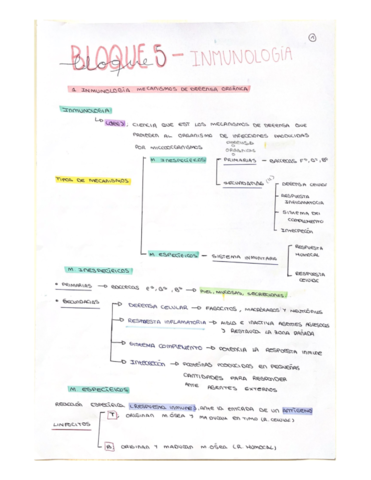 1
BLOQUE 5 - INMUNOLOGÍA
bloque
1. INMUNOLOGÍA MECANISMOS DE DEFENSA ORGÁNICA
INMUNOLOGÍA
CIENCIA QUE EST. LOS MECANISMOS DE DEFENSA QUE
PROTEGEN AL ORGANISMO DE INFECCIONES PRODUCIDAS
POR MICROORGANISMOS
M. INESPECÍFICOS
PRIMARIAS - BARRERAS Fª, Qª, Bª
SECUNDARIAS
DEFENSA CELULAR
RESPUESTA
INFLAMATORIA
SISTEMA DEL
COMPLEMENTO
INTERFERÓN
TIPOS DE MECANISMOS
M. ESPECÍFICOS - SISTEMA INMUNITARIO
RESPUESTA
HUMORAL
RESPUESTA
CELULAR
M. INESPECÍFICOS
PRIMARIAS → BARRERAS Fª, Qª, Bª → PIEL, MUCOSAS, SECRECIONES.
SECUNDARIAS → DEFENSA CELULAR → FAGOCITOS, MACRÓFAGOS Y NEUTRÓFILOS
→ RESPUESTA INFLAMATORIA → AISLA E INACTIVA AGENTES AGRESORES
Y RESTAURA LA ZONA DAÑADA
→ SISTEMA COMPLEMENTO → LA RESPUESTA INMUNE
→ INTERFERÓN → PROTEÍNAS PRODUCIDAS EN PEQUEÑAS
CANTIDADES PARA RESPONDER
ANTE AGENTES EXTERNOS
M. ESPECÍFICOS
REACCIÓN ESPECÍFICA (RESPUESTA INMUNE), ANTE LA ENTRADA DE UN ANTÍGENO
T. ORIGINAN M. ÓSEA Y MADURAN EN TIMO (R. CELULAR)
LINFOCITOS
B ORIGINAN Y MADURAN M. ÓSEA (R. HUMORAL)